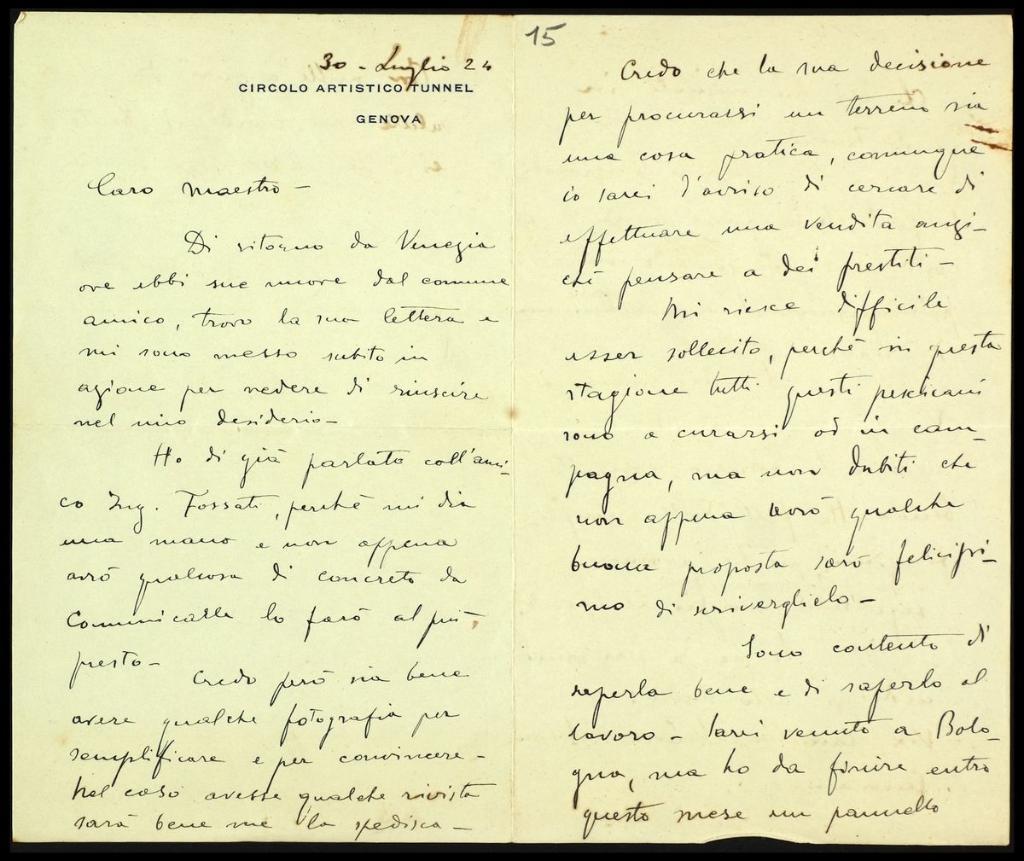 30 - Luglio 24
CIRCOLO ARTISTICO TUNNEL
GENOVA
Caro Maestro -
Di ritorno da Venezia
ove ebbi sue nuove dal comune
amico, trovo la sua lettera e
mi sono messo subito in
azione per vedere di riuscire
nel mio desiderio -
Ho di già parlato coll'ami-
co Ing. Fossati, perché mi dia
una mano e non appena
avrò qualcosa di concreto da
comunicarLe lo farò al più
presto -
Credo però sia bene
avere qualche fotografia per
semplificare e per convincere -
Nel caso avesse qualche rivista
sarà bene me la spedisca -
15
Credo che la sua decisione
per procurarsi un terreno sia
una cosa pratica, comunque
io sarei d'avviso di cercare di
effettuare una vendita anzi-
ché pensare a dei prestiti -
Mi riesce difficile
esser sollecito, perché in questa
stagione tutti questi pescicani
sono a curarsi od in cam-
pagna, ma non dubiti che
non appena avrò qualche
buona proposta sarò felicissi-
mo di scriverglielo -
Sono contento di
saperla bene e di saperlo al
lavoro - Sarei venuto a Bolo-
gna, ma ho da finire entro
questo mese un pannello